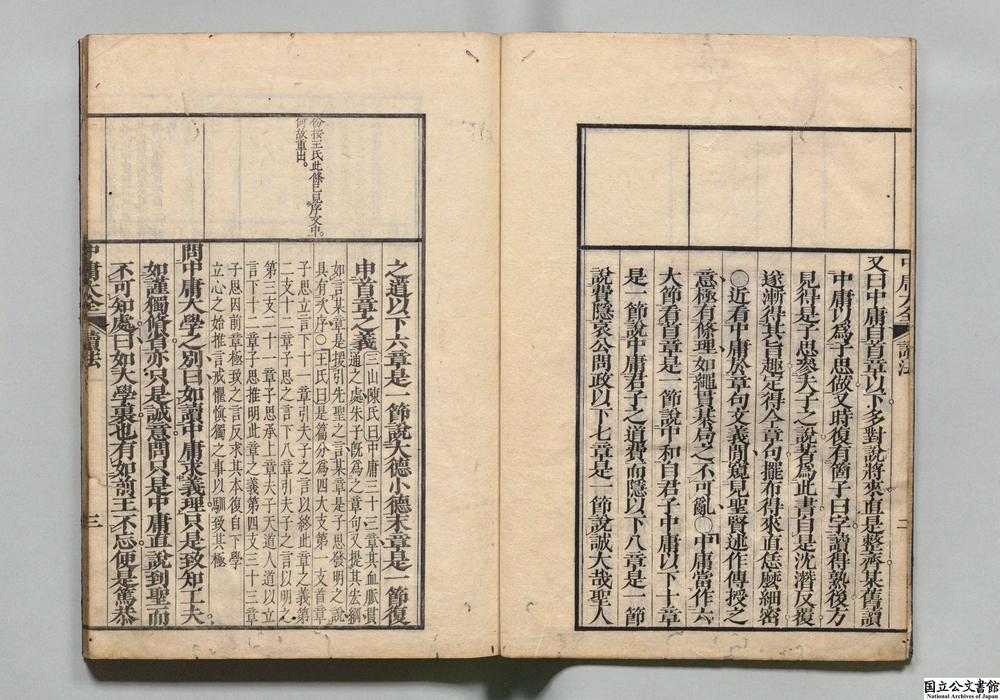 又曰中庸自首章以下多對說將來直是整齊某舊讀
中庸以為子思做又時復有箇子曰字讀得熟後方
見得是子思參夫子之說著為此書自是沈潛反覆
遂漸得其旨趣定得今章句擺布得來直恁麼細密
○近看中庸於章句文義間窺見聖賢述作傳授之
意極有條理如繩貫棊局之不可亂○中庸當作六
大節看首章是一節說中和自君子中庸以下十章
是一節說中庸君子之道費而隱以下八章是一節
說費隱哀公問政以下七章是一節說誠大哉聖人
之道以下六章是一節說大德小德末章是一節復
申首章之義
三山陳氏曰中庸三十三章其血脈貫
通之處朱子旣為之章句又提其宏綱
如言某章是援引先聖之言某章是子思發明之說
具有次序○王氏曰是篇分為四大支第一支首章
子思立言下十一章引夫子之言以終此章之義第
二支十二章子思之言下八章引夫子之言以明之
第三支二十一章子思承上章夫子天道人道以立
言下十二章子思推明此章之義第四支三十三章
子思因前章極致之言反求其本復自下學
立心之始推言戒懼慎獨之事以馴致其極
問中庸大學之別曰如讀中庸求義理只是致知工夫
如謹獨脩省亦只是誠意問只是中庸直說到聖而
不可知處曰如大學裏也有如前王不忘便是篤恭
份按王氏此條已見序文中
何故重出。
中庸大全
讀法
二
中庸大全
讀法
三
国立公文書館
National Archives of Japan